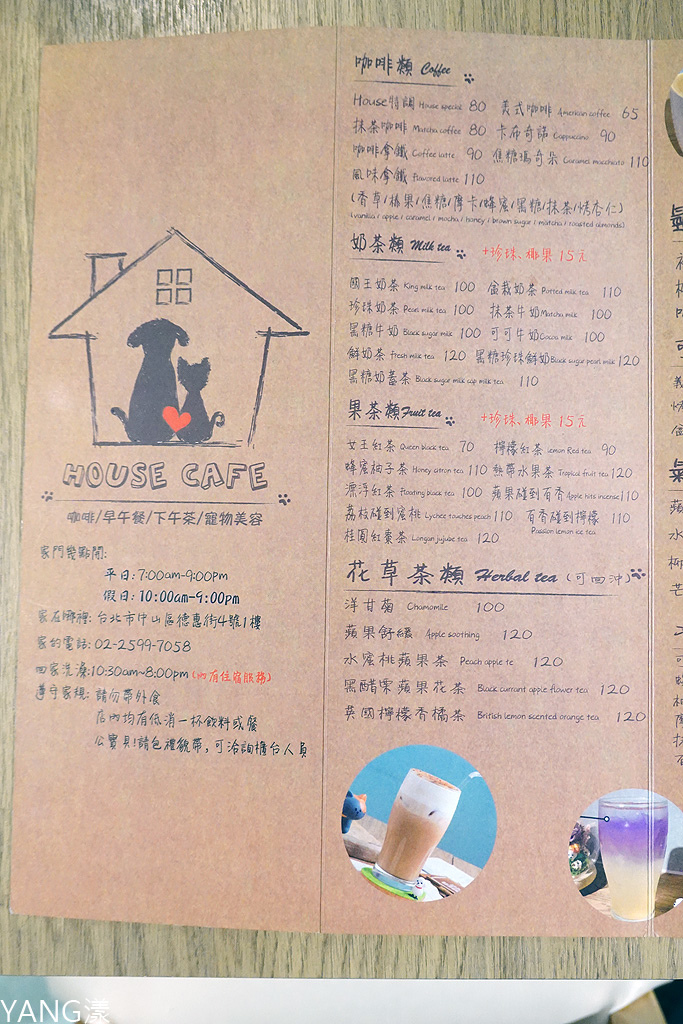 HOUSE CAFE
咖啡/早午餐/下午茶/寵物美容
家門幾點開:
平日:7:00am-9:00pm
假日:10:00am-9:00pm
家在哪裡:台北市中山區德惠街4號1樓
家的電話:02-2599-7058
回家洗澡:10:30am~8:00pm(內有住宿服務)
遵守家規:請勿帶外食
店內均有低消一杯飲料或餐
公寶貝!請包禮貌帶,可洽詢櫃台人員
咖啡類 Coffee
House特調 House special 80 美式咖啡 American coffee 65
抹茶咖啡 Matcha coffee 80 卡布奇諾 Cappuccino 90
咖啡拿鐵 Coffee latte 90 焦糖瑪奇朵 Caramel macchiato 110
風味拿鐵 Flavored latte 110
(香草/榛果/焦糖/摩卡/蜂蜜/黑糖/抹茶/烤杏仁)
(vanilla / apple / caramel / mocha / honey / brown sugar / matcha / roasted almonds)
奶茶類 Milk tea +珍珠、椰果 15元
國王奶茶 King milk tea 100 盆栽奶茶 Potted milk tea 110
珍珠奶茶 Pearl milk tea 100 抹茶牛奶 Matcha milk 100
黑糖牛奶 Black sugar milk 100 可可牛奶 Cocoa milk 100
鮮奶茶 fresh milk tea 120 黑糖珍珠鮮奶 Black sugar pearl milk 120
黑糖奶蓋茶 Black sugar milk cap milk tea 110
果茶類 Fruit tea +珍珠、椰果 15元
女王紅茶 Queen black tea 70 檸檬紅茶 lemon Red tea 90
蜂蜜柚子茶 Honey citron tea 110 熱帶水果茶 Tropical fruit tea 120
漂浮紅茶 Floating black tea 100 蘋果碰到百香 Apple hits incense 110
荔枝碰到蜜桃 Lychee touches peach 110 百香碰到檸檬 Passion lemon ice tea 110
桂圓紅棗茶 Longan jujube tea 120
花草茶類 Herbal tea (可回沖)
洋甘菊 Chamomile 100
蘋果舒緩 Apple soothing 120
水蜜桃蘋果茶 Peach apple te 120
黑醋栗蘋果花茶 Black currant apple flower tea 120
英國檸檬香橘茶 British lemon scented orange tea 120
YANG漾